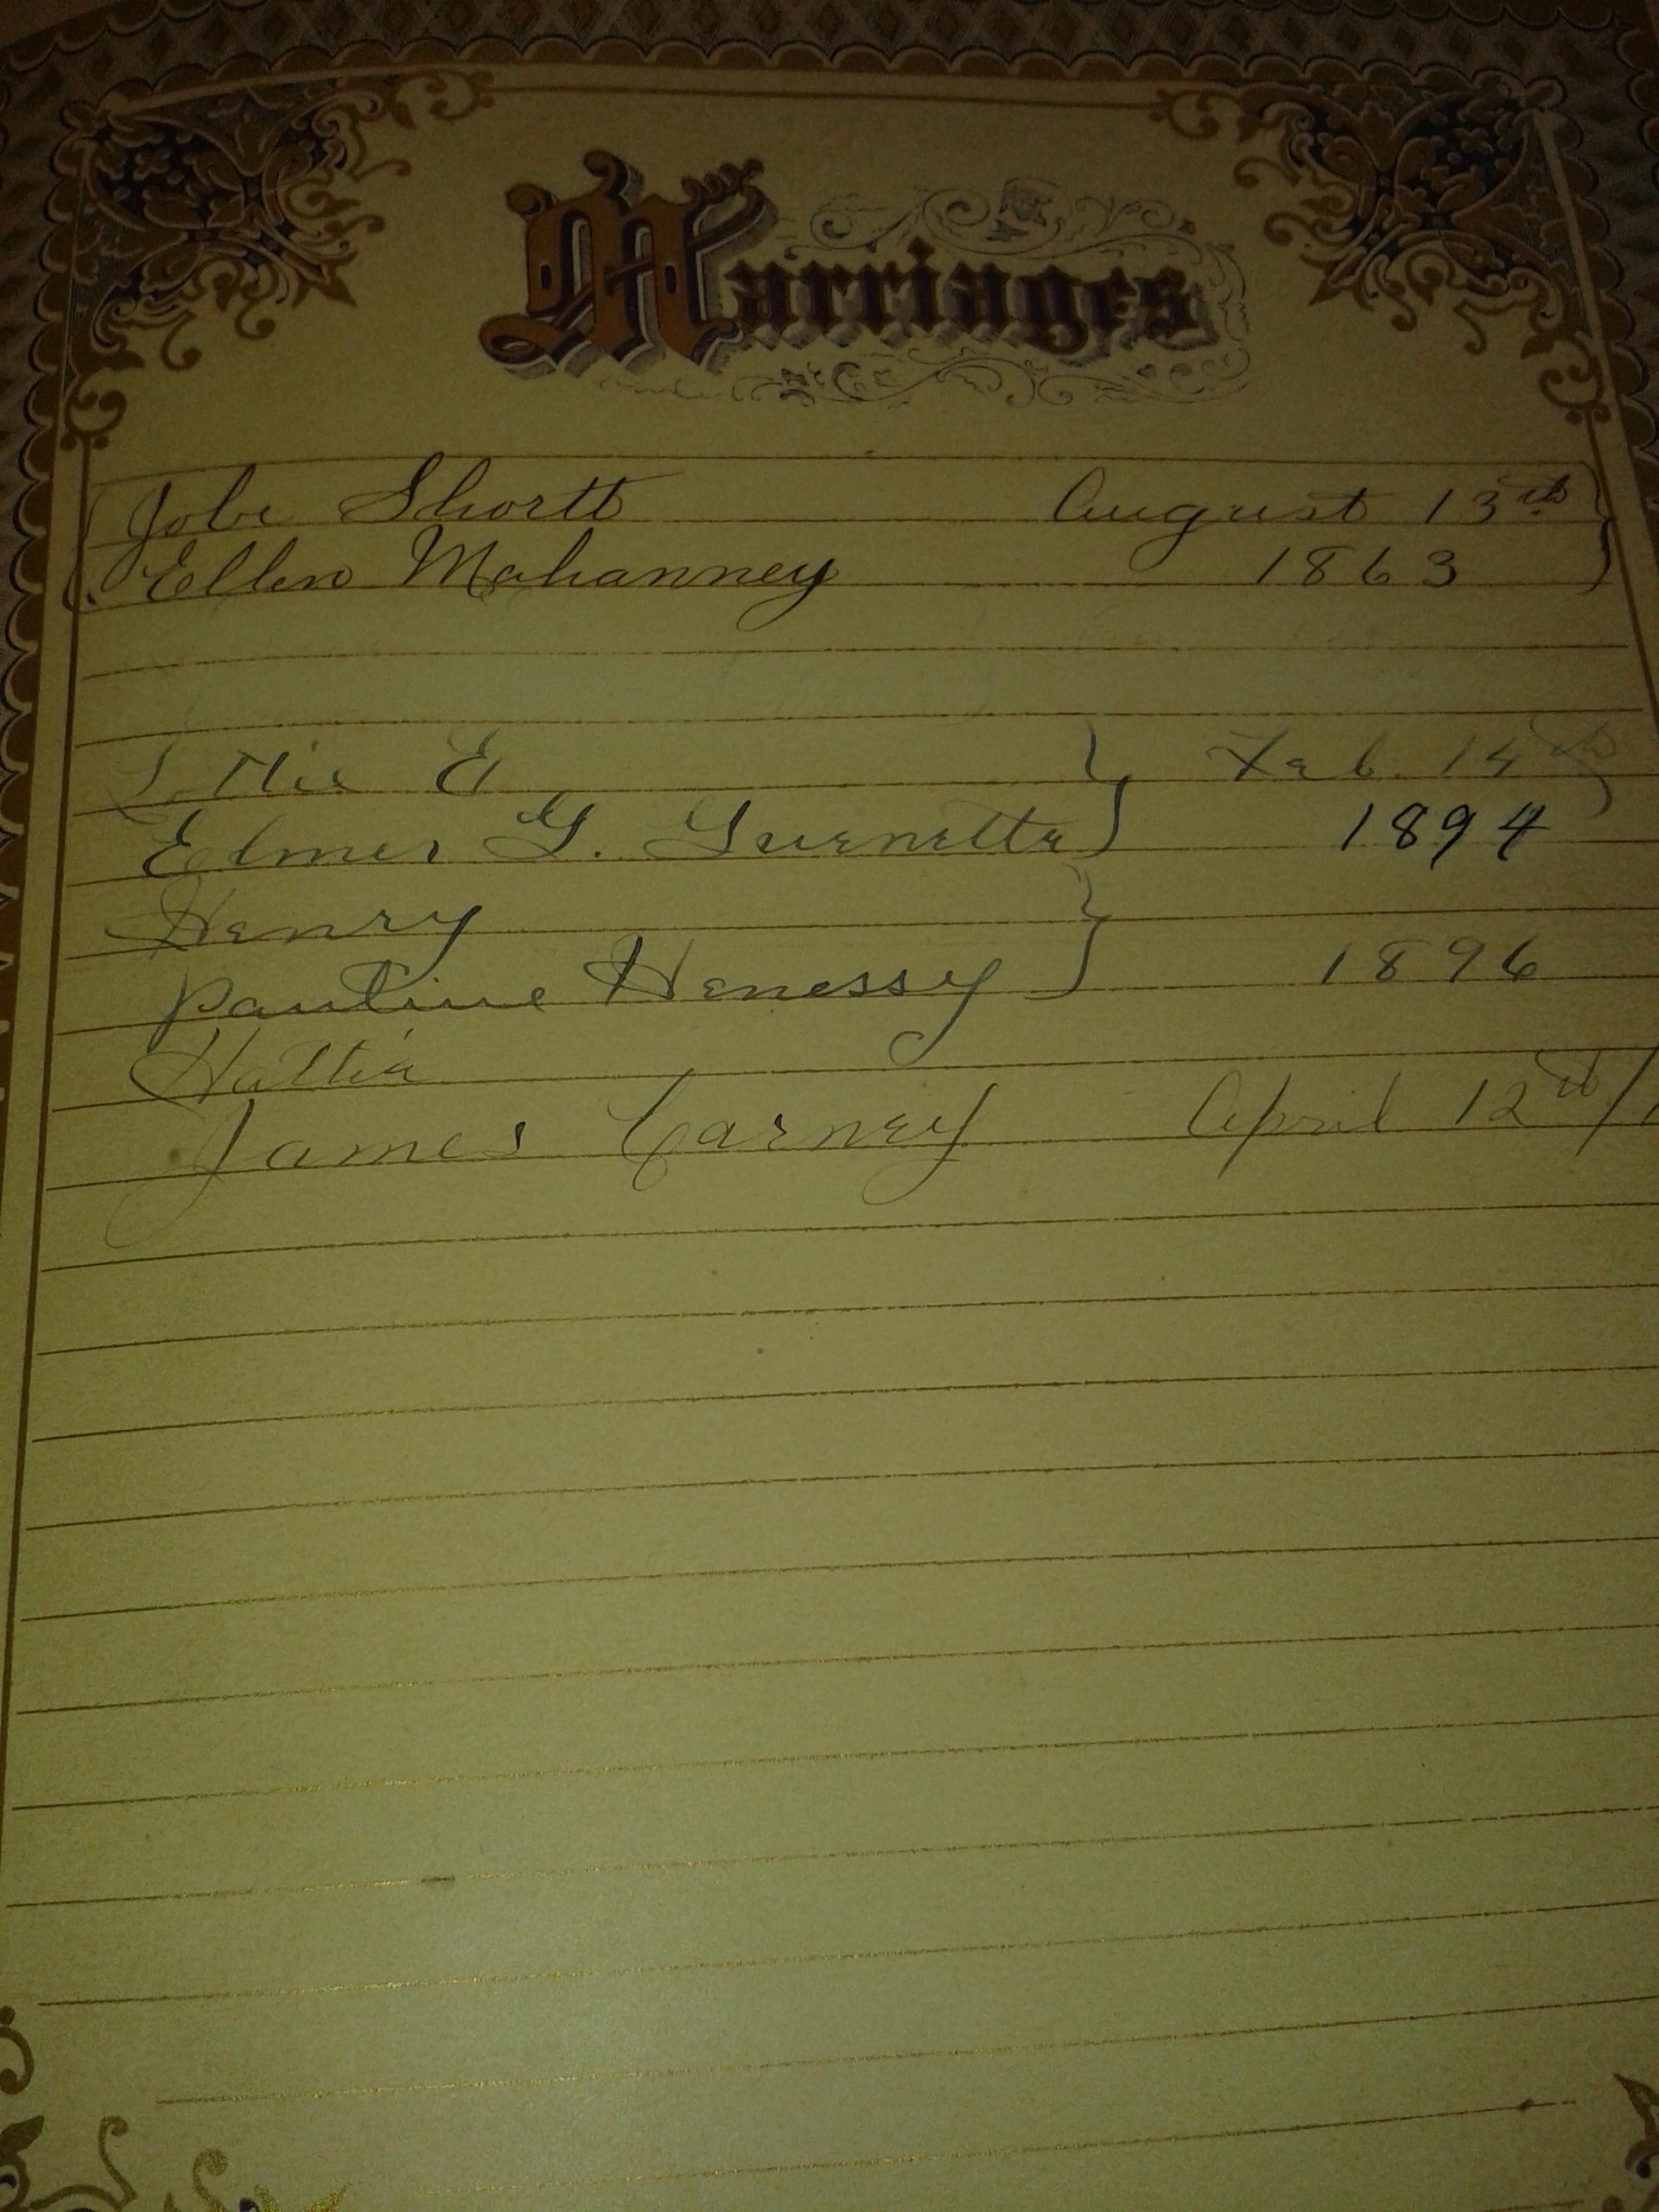 Marriages
Jobe Shortt August 13th
Ellen Mahanney 1863
E Feb. 14th
Elmer G. Guenette 1894
Henry
Pauline Henessy 1896
Hattie
James Carney April 12th